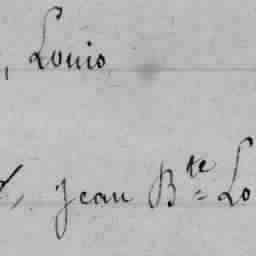 , Louis
, Jean Bte = Lo